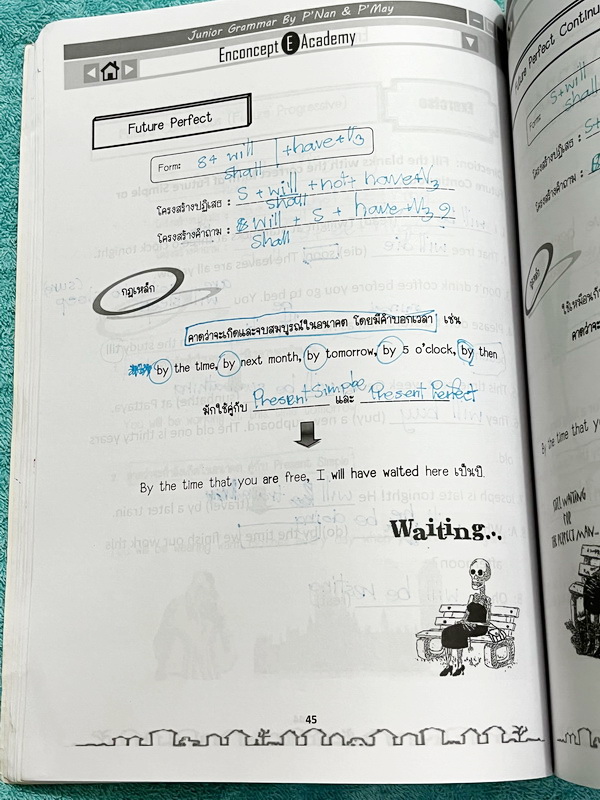 Junior Grammar By P'Nan & P'May
Enconcept E Academy
Future Perfect
Form: S+ will + have + V3
shall
โครงสร้างปฏิเสธ : S + will + not + have + V3
shall
โครงสร้างคำถาม : will + S + have + V3 ?
shall
กฎเหล็ก
คาดว่าจะเกิดและจบสมบูรณ์ในอนาคต โดยมีคำบอกเวลา เช่น
by the time, by next month, by tomorrow, by 5 o'clock, by then
มักใช้คู่กับ Present Simple และ Present Perfect
By the time that you are free, I will have waited here เป็นปี.
Waiting...
45
Future Perfect Continu
Form: S+will
shall
โครงสร้างปฏิเสธ :
โครงสร้างคำถาม :
By the time that y
STILL WAITING
FOR
THE PERFECT MAN...